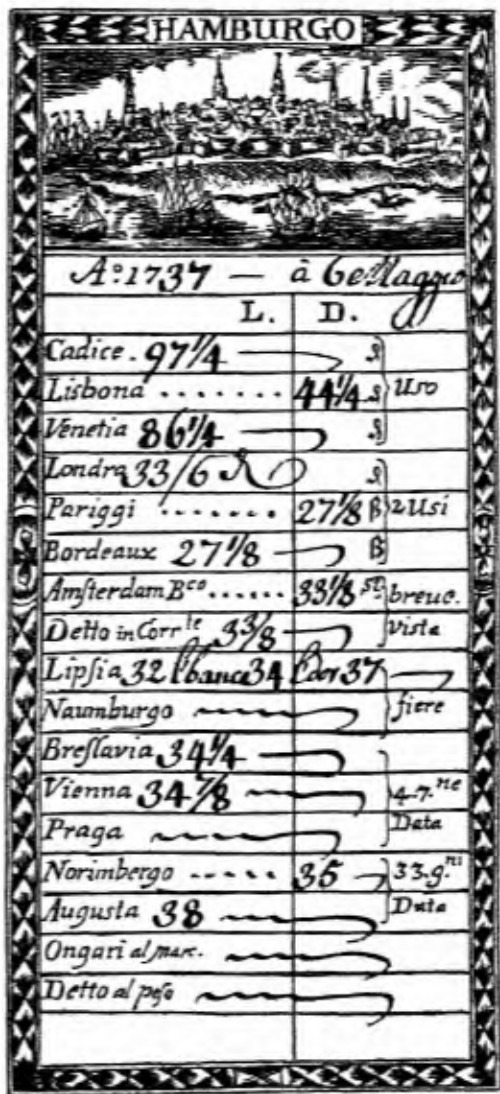 HAMBURGO
Aº. 1737 — à 6e Maggio
L. D.
Cadice. 97¼ ₰
Lisbona ....... 44¼ ₰ } Uso
Venetia 86¼ ₰
Londra 33/6 ₰
Pariggi ....... 27⅛ ß } 2 Usi
Bordeaux 27⅛ ß
Amsterdam Bco ...... 33⅛ st. } breue.
Detto in Corrte 33/8 vista
Lipsia 32 34 37
Naumburgo } fiere
Breslavia 34¼
Vienna 34⅞ } 4.7.ne
Praga Data
Norimbergo ..... 35 } 33.g.ni
Augusta 38 Data
Ongari al marc.
Detto al peso